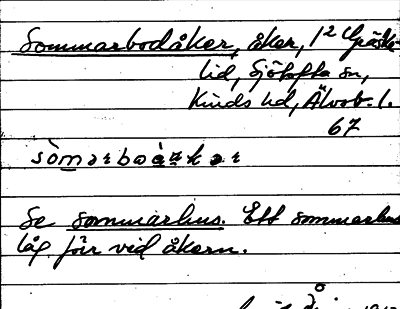 Sommarbodåker, åker, 1² Gräshe-
lid, Sjötofta sn,
Kinds hd, Älvsb. l.
67
Se sommarhus. Ett sommarhus
låg förr vid åkern.